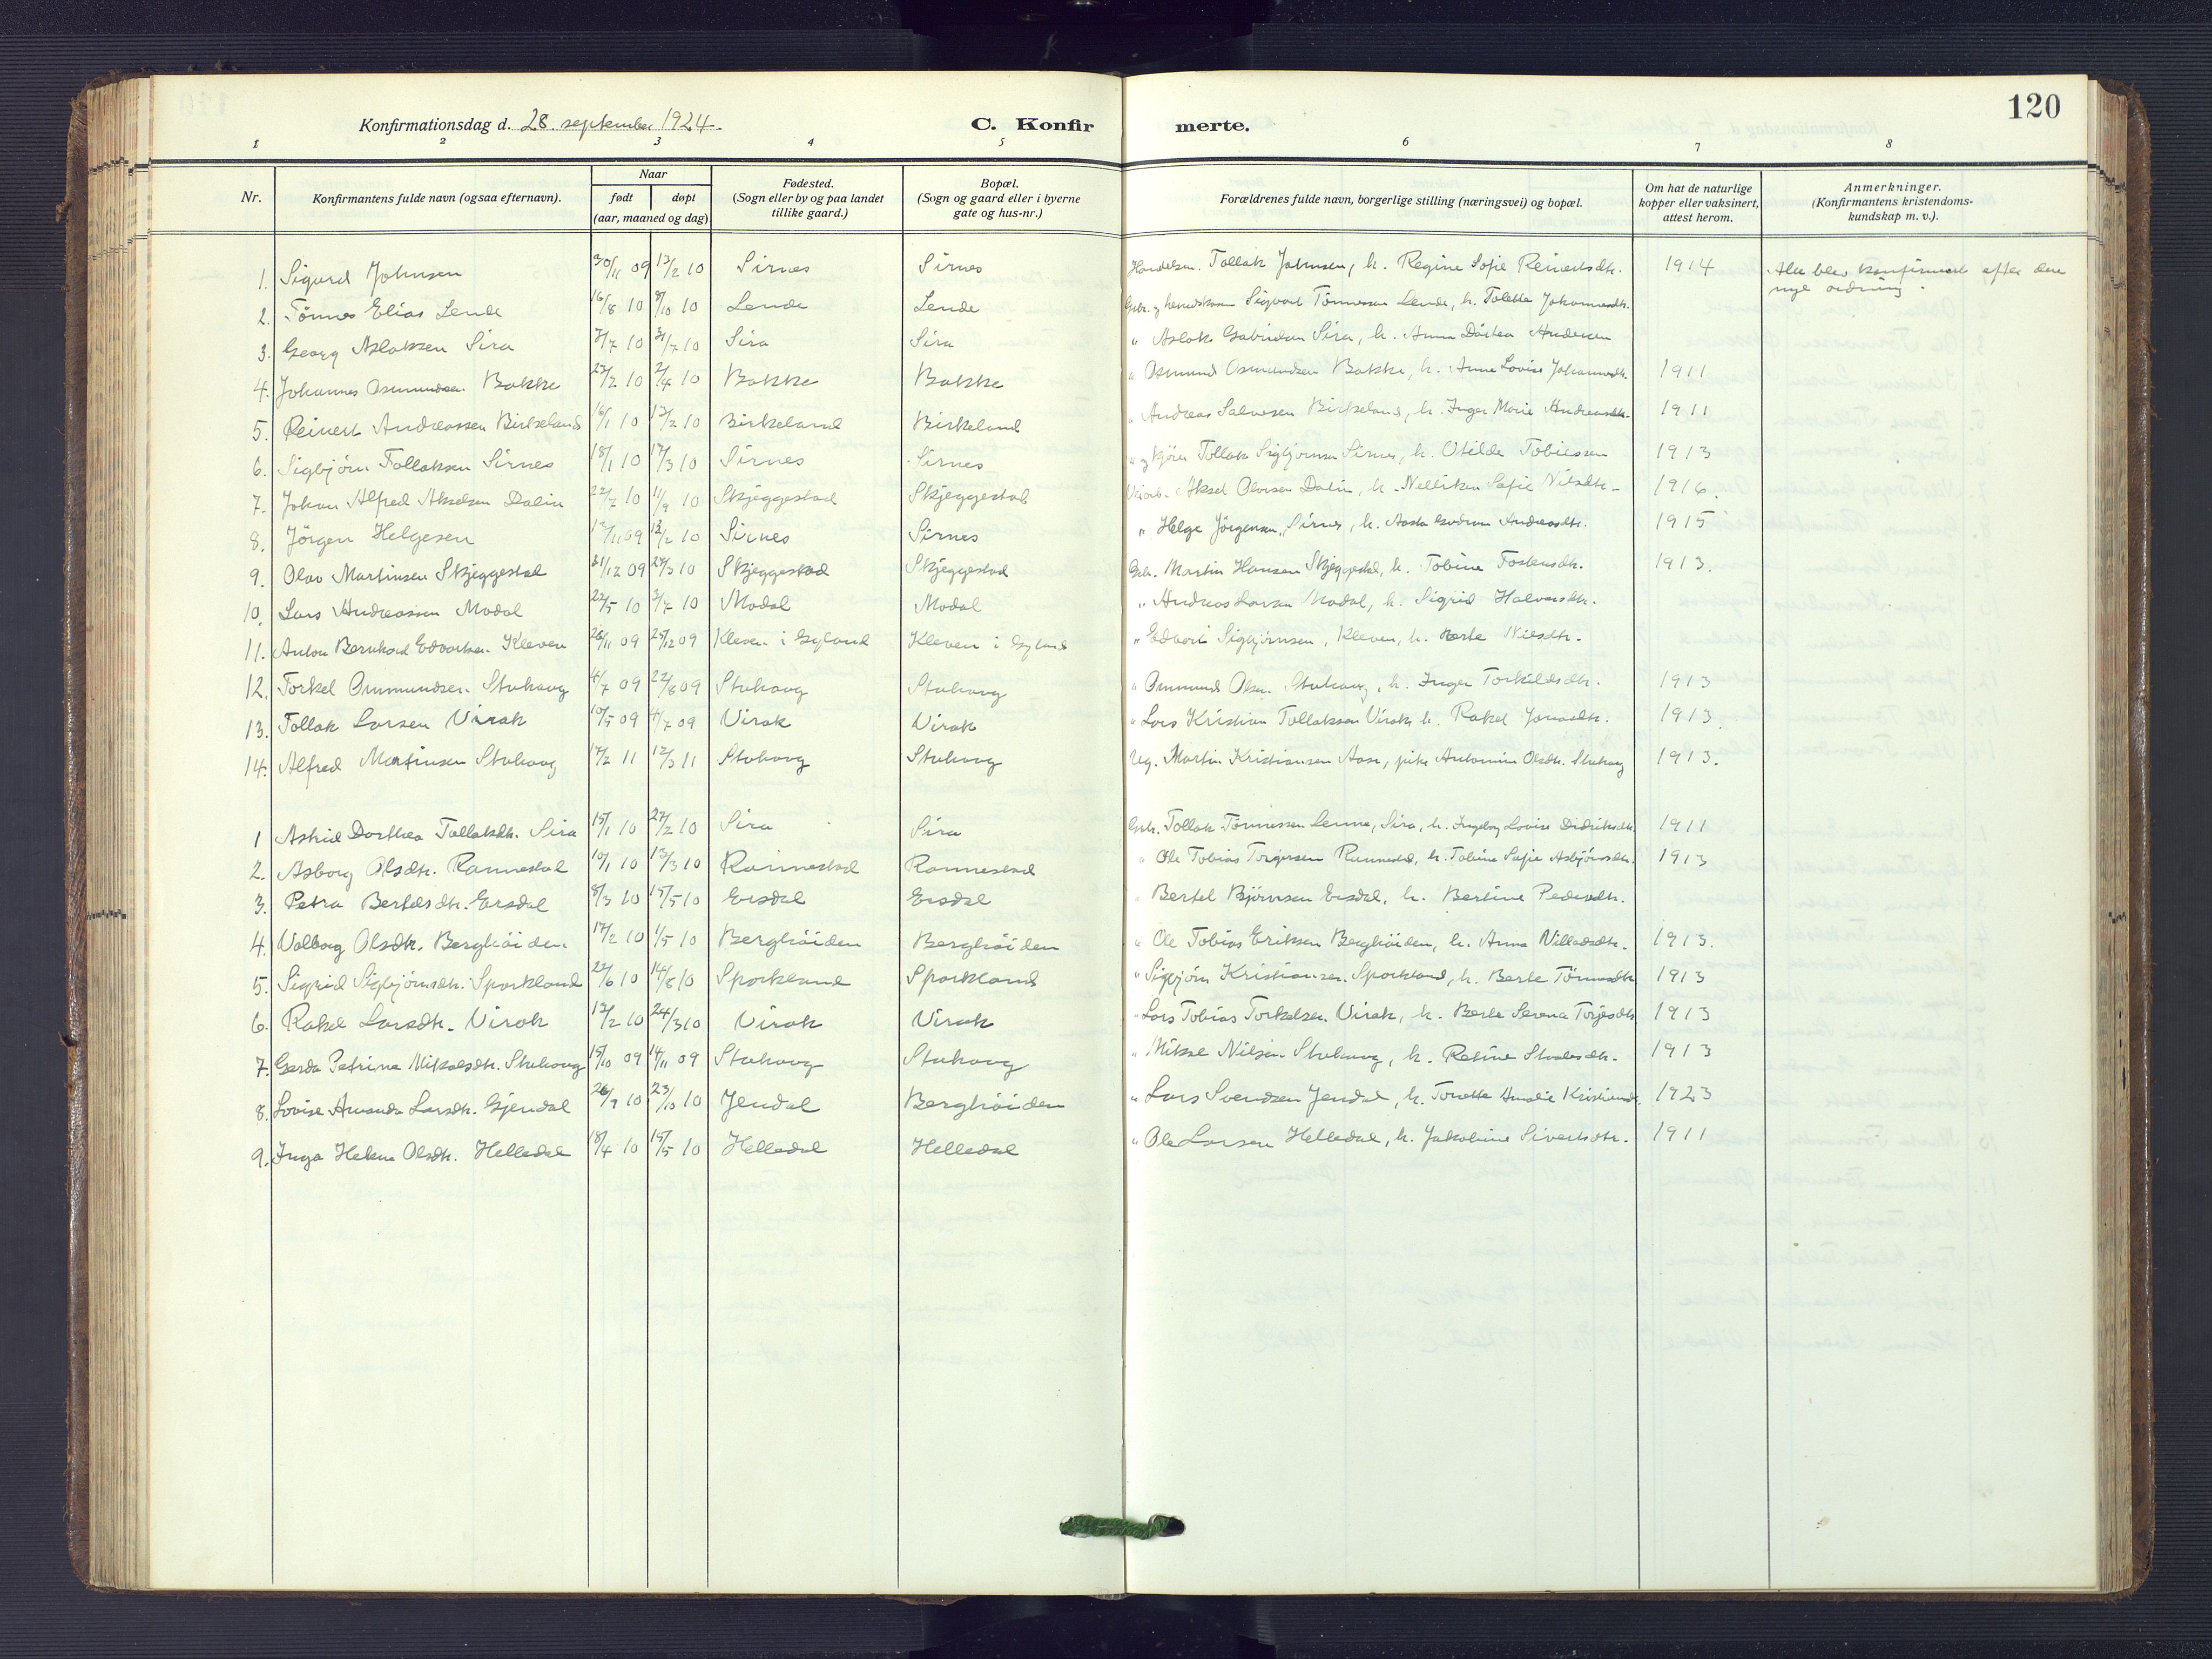 120
Konfirmationsdag d. 28. september 1924.
C. Konfir merte.
1 2 3 4 5 6 7 8
Nr. Konfirmantens fulde navn (ogsaa efternavn). Naar født døpt (aar, maaned og dag) Fødested. (Sogn eller by og paa landet tillike gaard.) Bopæl. (Sogn og gaard eller i byerne gate og hus-nr.) Forældrenes fulde navn, borgerlige stilling (næringsvei) og bopæl. Om hat de naturlige kopper eller vaksinert, attest herom. Anmerkninger. (Konfirmantens kristendoms-kundskap m. v.).
1. Sigurd Johnsen 30/11 09 13/2 10 Sirnes Sirnes Handelsm. Tollak Johnsen, h. Regine Sofie Reinertsdtr. 1914 Alle blev konfirmert efter den nye ordning.
2. Tönnes Elias Lende 16/8 10 9/10 10 Lende Lende Sigvart Tönnessen Lende, h. Tolette Johannesdtr.
3. Georg Aslaksen Sira 7/7 10 31/7 10 Sira Sira " Aslak Gabrielsen Sira, h. Anna Dortea Andersen
4. Johannes Osmundsen Bakke 23/2 10 2/4 10 Bakke Bakke " Osmund Osmundsen Bakke, h. Anne Lovise Johannesdtr. 1911
5. Reinert Andreassen Birkeland 16/1 10 13/2 10 Birkeland Birkeland " Andreas Salvesen Birkeland, h. Inger Marie Andreasdtr. 1911
6. Sigbjörn Tollaksen Sirnes 18/1 10 17/3 10 Sirnes Sirnes " Tollak Sigbjörnsen Sirnes, h. Otilde Tobiassen 1913
7. Johan Alfred Akselsen Dalin 22/7 10 11/9 10 Skjeggestad Skjeggestad Aksel Olorsen Dalin, h. Nelliken Sofie Nilsdtr. 1916.
8. Jörgen Helgesen 12/11 09 13/2 10 Sirnes Sirnes " Helge Jörgensen, Sirnes, h. Aasta Gudrun Andreasdtr. 1915
9. Olav Martinsen Skjeggestad 21/12 09 27/3 10 Skjeggestad Skjeggestad Gbr. Martin Hansen Skjeggestad, h. Tobine Tostensdtr. 1913.
10. Lars Andreassen Modal 22/5 10 3/7 10 Modal Modal " Andreas Larsen Modal, h. Sigrid Halvorsdtr.
11. Anton Bernhard Edvartsen Kleven 26/11 09 25/12 09 Kleven i Gyland Kleven i Gyland " Edvart Sigbjörnsen, Kleven, h. Berte Nilsdtr.
12. Torkel Ommundsen Stuhaug 4/7 09 22/8 09 Stuhaug Stuhaug " Ommund Olsen Stuhaug, h. Inger Torkildsdtr. 1913
13. Tollak Larsen Virak 10/5 09 4/7 09 Virak Virak " Lars Kristian Tollaksen Virak, h. Rakel Jonasdtr. 1913
14. Alfred Martinsen Stuhaug 17/2 11 12/3 11 Stuhaug Stuhaug Ug. Martin Kristiansen Aase, pike Antomine Olsdtr. Stuhaug 1913.
1 Astrid Dorthea Tollaksdtr. Sira 15/1 10 27/2 10 Sira Sira Gbr. Tollak Tönnessen Lenne, Sira, h. Ingeborg Lovise Didriksdtr. 1911
2. Asborg Olsdtr. Rannestad 10/1 10 13/3 10 Rannestad Rannestad " Ole Tobias Torgersen Rannestad, h. Tobine Sofie Asbjörnsdtr. 1913
3. Petra Bertelsdtr. Ersdal 8/3 10 15/5 10 Ersdal Ersdal " Bertel Björnsen Ersdal, h. Bertine Pedersdtr.
4. Valborg Olsdtr. Berghöiden 17/2 10 1/5 10 Berghöiden Berghöiden " Ole Tobias Eriksen Berghöiden, h. Anna Villadsdtr. 1913.
5. Sigrid Sigbjörnsdtr. Sporkland 22/6 10 14/8 10 Sporkland Sporkland " Sigbjörn Kristiansen Sporkland, h. Berte Tönnesdtr. 1913
6. Rakel Larsdtr. Virak 12/2 10 24/3 10 Virak Virak " Lars Tobias Torkelsen Virak, h. Berte Serena Torjesdtr. 1913
7. Gerda Petrine Mikalsdtr. Stuhaug 15/10 09 14/11 09 Stuhaug Stuhaug " Mikal Nilsen Stuhaug, h. Reline Staalesdtr. 1913
8. Lovise Amanda Larsdtr. Gjendal 26/9 10 23/10 10 Jendal Berghöiden " Lars Svendsen Jendal, h. Tonette Amalie Kristiansdtr. 1923
9. Inga Helene Olsdtr. Helledal 18/4 10 15/5 10 Helledal Helledal " Ole Larsen Helledal, h. Jakobine Sivertsdtr. 1911